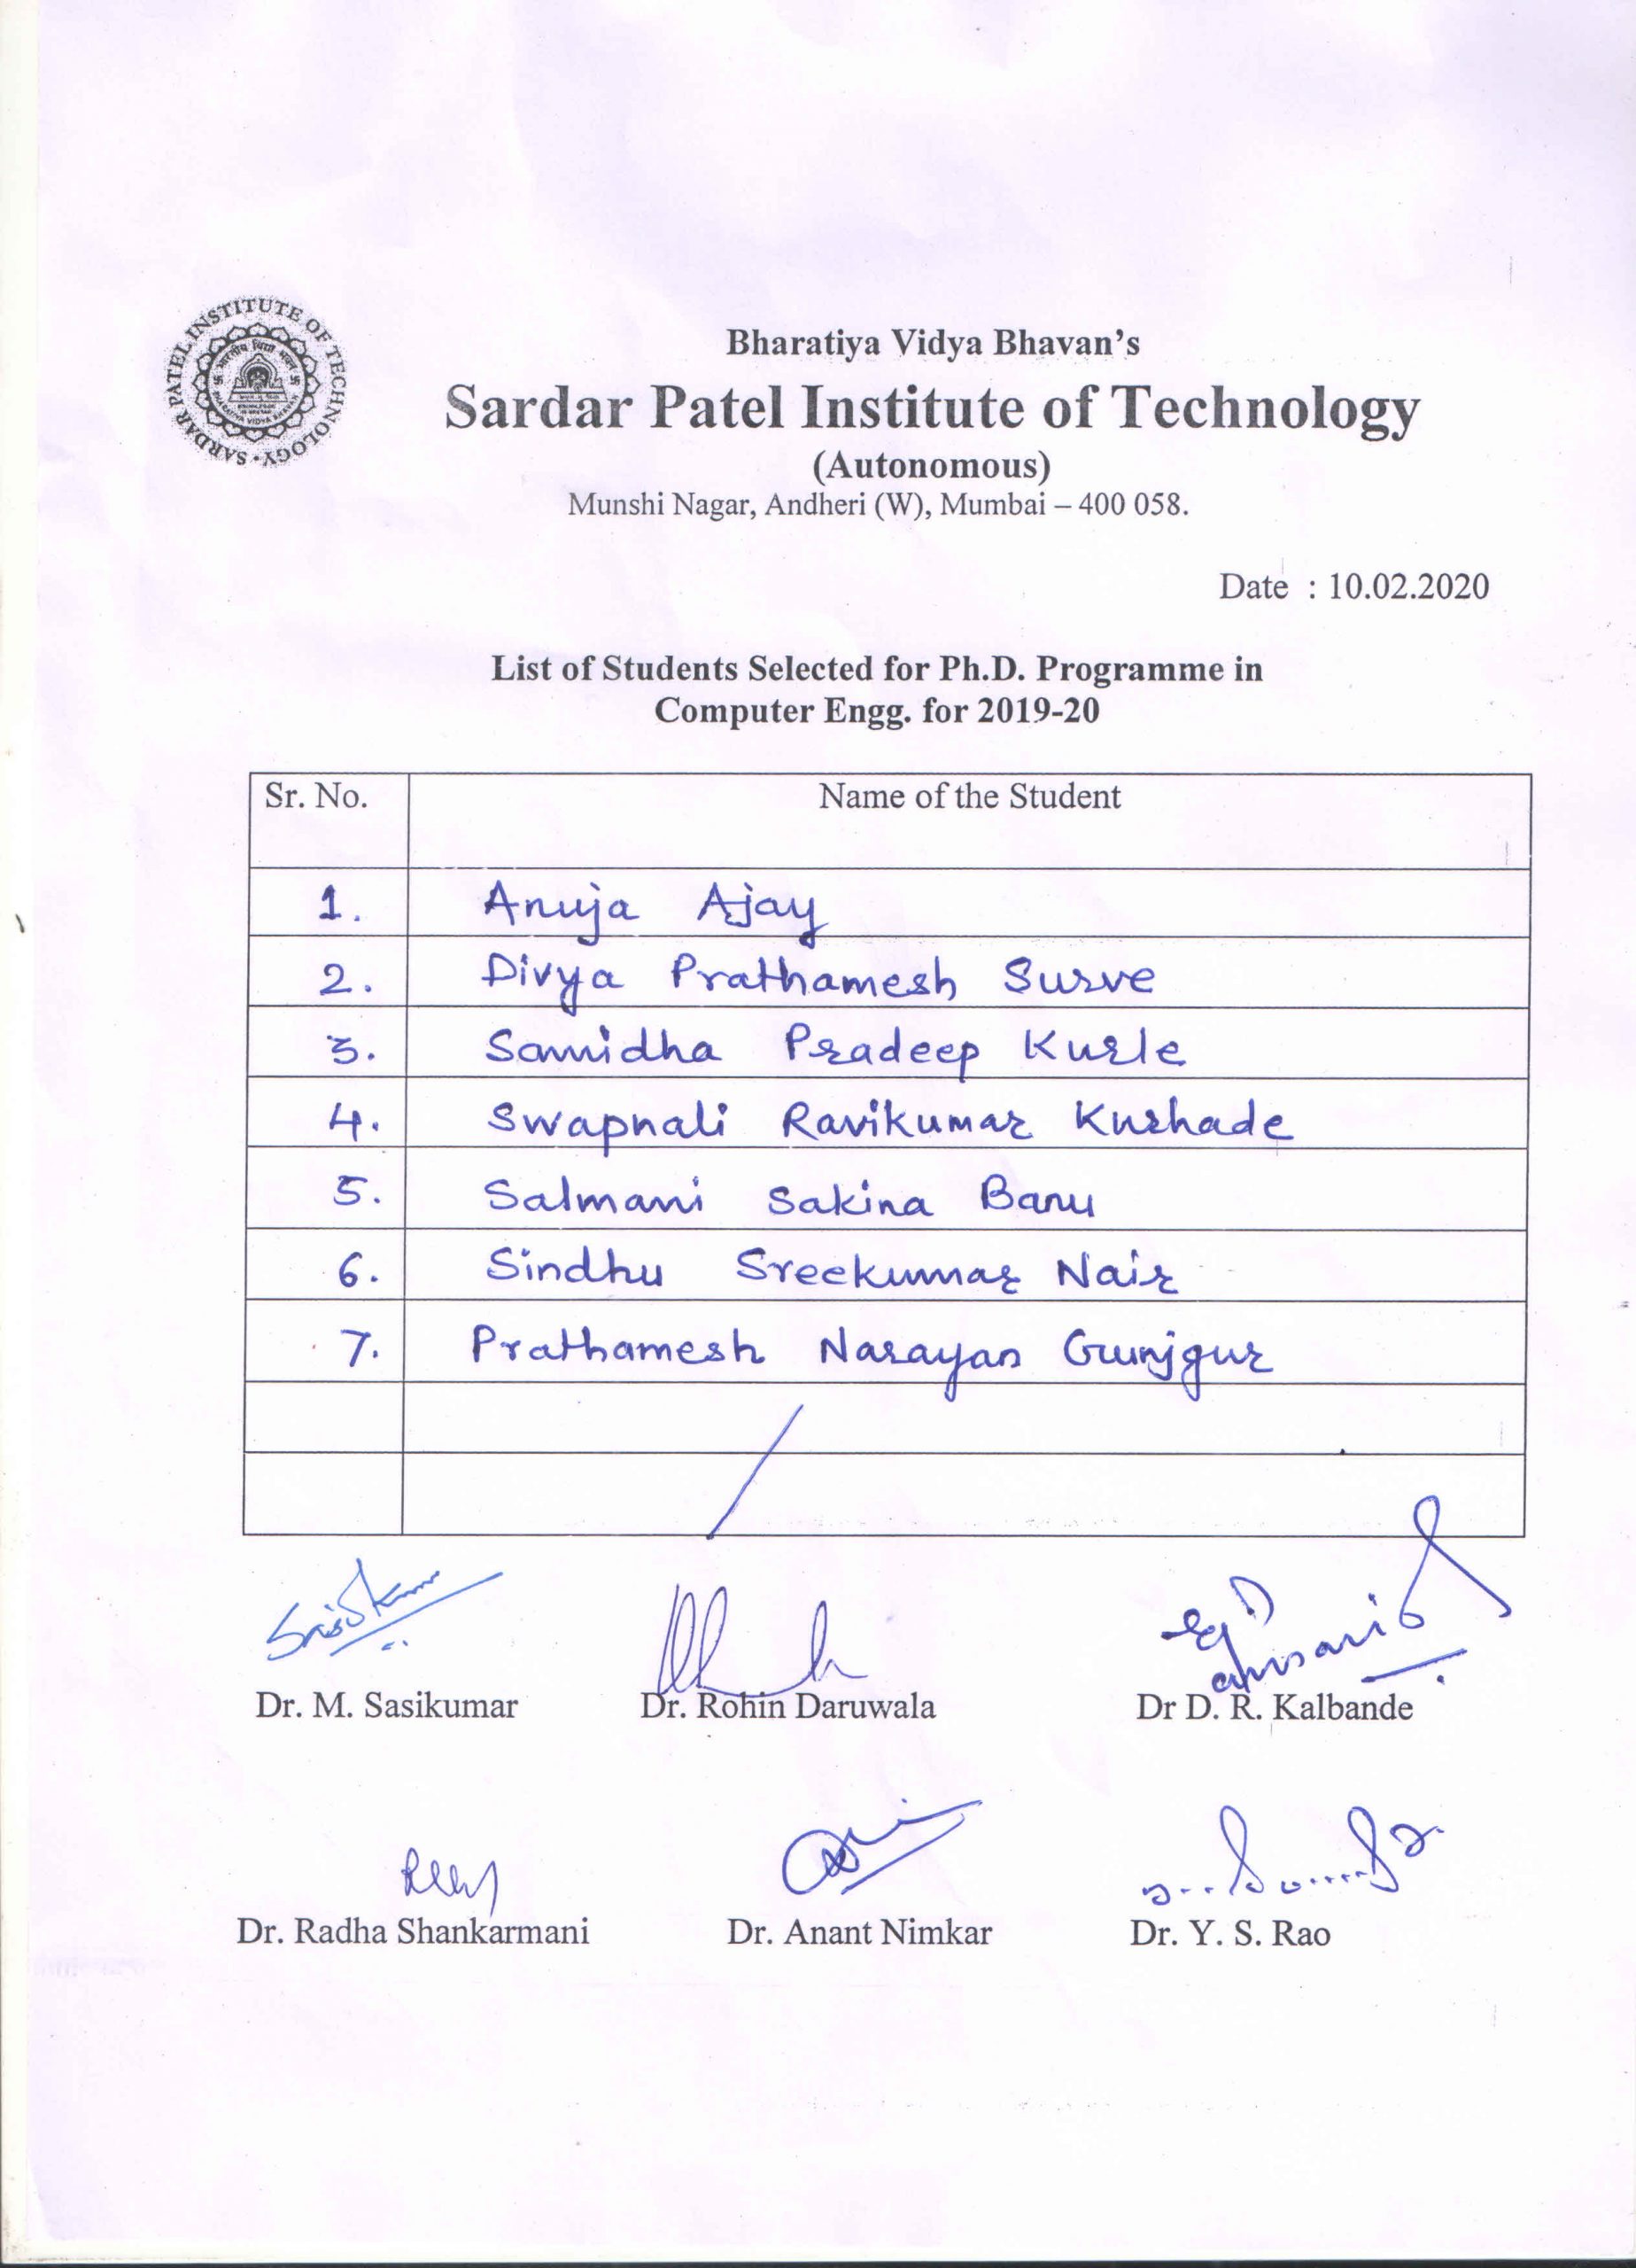 SARDAR PATEL INSTITUTE OF TECHNOLOGY
Bharatiya Vidya Bhavan's
Sardar Patel Institute of Technology
(Autonomous)
Munshi Nagar, Andheri (W), Mumbai – 400 058.
Date : 10.02.2020
List of Students Selected for Ph.D. Programme in
Computer Engg. for 2019-20
Sr. No. Name of the Student
1. Anuja Ajay
2. Divya Prathamesh Surve
3. Samidha Pradeep Kurle
4. Swapnali Ravikumar Kurhade
5. Salmani Sakina Banu
6. Sindhu Sreekumar Nair
7. Prathamesh Narayan Gunjgur
Sasikumar
Dr. M. Sasikumar Dr. Rohin Daruwala Dr D. R. Kalbande
Dr. Radha Shankarmani Dr. Anant Nimkar Dr. Y. S. Rao